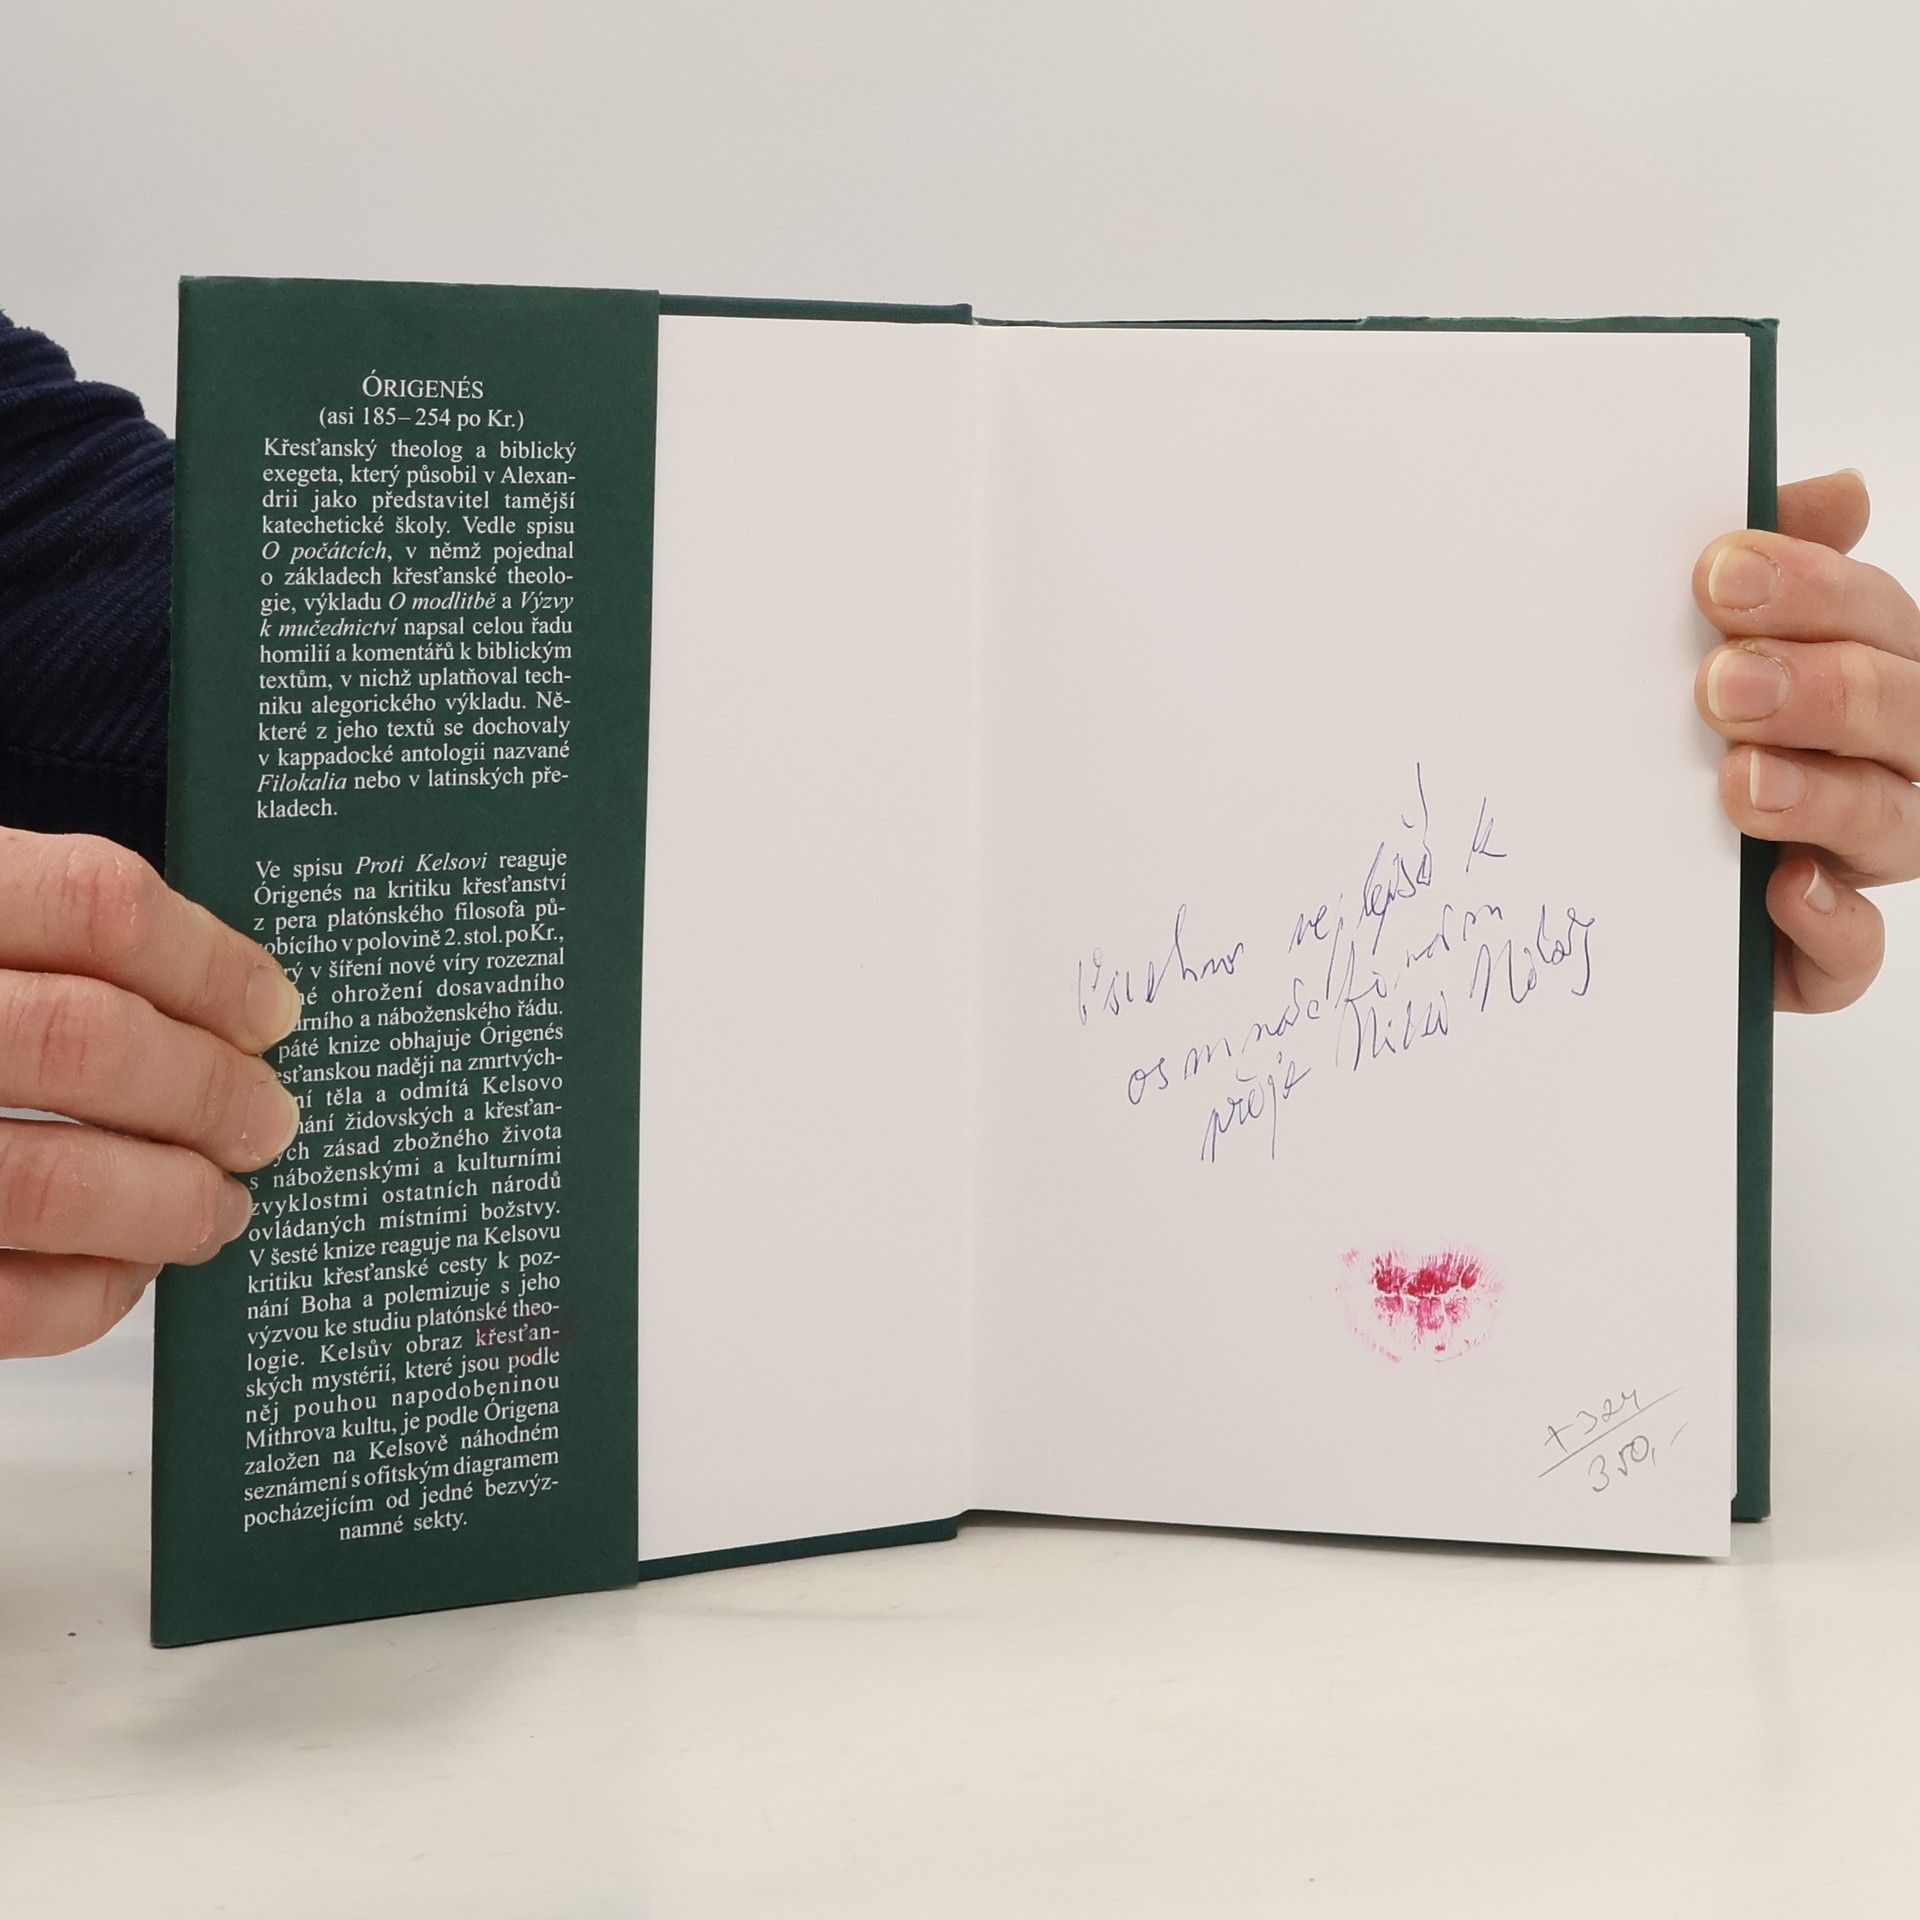 ÓRIGENÉS
(asi 185–254 po Kr.)
Křesťanský theolog a biblický
exegeta, který působil v Alexan-
drii jako představitel tamější
katechetické školy. Vedle spisu
O počátcích, v němž pojednal
o základech křesťanské theolo-
gie, výkladu O modlitbě a Výzvy
k mučednictví napsal celou řadu
homilií a komentářů k biblickým
textům, v nichž uplatňoval tech-
niku alegorického výkladu. Ně-
které z jeho textů se dochovaly
v kappadocké antologii nazvané
Filokalia nebo v latinských pře-
kladech.
Ve spisu Proti Kelsovi reaguje
Órigenés na kritiku křesťanství
z pera platónského filosofa pů-
obícího v polovině 2. stol. po Kr.,
v šíření nové víry rozeznal
ohrožení dosavadního
a náboženského řádu.
páté knize obhajuje Órigenés
naději na zmrtvých-
těla a odmítá Kelsovo
židovských a křesťan-
zásad zbožného života
s náboženskými a kulturními
zvyklostmi ostatních národů
ovládaných místními božstvy.
V šesté knize reaguje na Kelsovu
kritiku křesťanské cesty k poz-
nání Boha a polemizuje s jeho
výzvou ke studiu platónské theo-
logie. Kelsův obraz křesťan-
ských mystérií, které jsou podle
něj pouhou napodobeninou
Mithrova kultu, je podle Órigena
založen na Kelsově náhodném
seznámení s ofitským diagramem
pocházejícím od jedné bezvýz-
namné sekty.
Všechno nejlepší k
osmnáctinám
přeje
+324
350,-